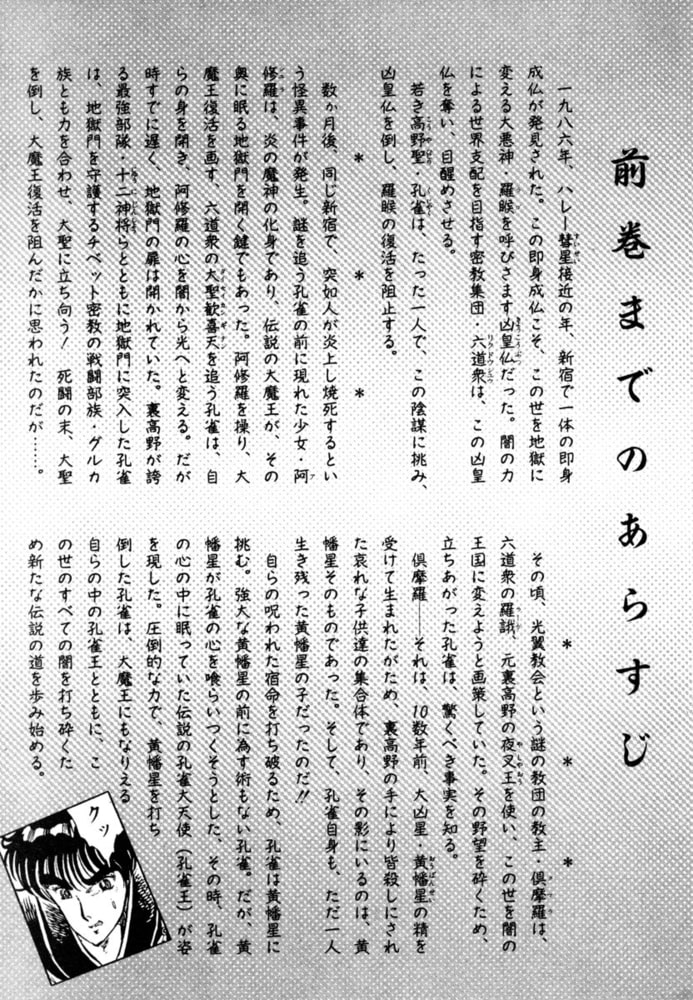 前巻までのあらすじ
一九八六年、ハレー彗星接近の年、新宿で一体の即身
成仏が発見された。この即身成仏こそ、この世を地獄に
変える大悪神・羅睺を呼びさます凶皇仏だった。闇の力
による世界支配を目指す密教集団・六道衆は、この凶皇
仏を奪い、目醒めさせる。
若き高野聖・孔雀は、たった一人で、この陰謀に挑み、
凶皇仏を倒し、羅睺の復活を阻止する。
＊　＊　＊
数か月後、同じ新宿で、突如人が炎上し焼死するとい
う怪異事件が発生。謎を追う孔雀の前に現れた少女・阿
修羅は、炎の魔神の化身であり、伝説の大魔王が、その
奥に眠る地獄門を開く鍵でもあった。阿修羅を操り、大
魔王復活を画す、六道衆の大聖歓喜天を追う孔雀は、自
らの身を開き、阿修羅の心を闇から光へと変える。だが
時すでに遅く、地獄門の扉は開かれていた。裏高野が誇
る最強部隊・十二神将らとともに地獄門に突入した孔雀
は、地獄門を守護するチベット密教の戦闘部族・グルカ
族とも力を合わせ、大聖に立ち向う！　死闘の末、大聖
を倒し、大魔王復活を阻んだかに思われたのだが……。
＊　＊　＊
その頃、光翼教会という謎の教団の教主・倶摩羅は、
六道衆の羅誐、元裏高野の夜叉王を使い、この世を闇の
王国に変えようと画策していた。その野望を砕くため、
立ちあがった孔雀は、驚くべき事実を知る。
倶摩羅――それは、10数年前、大凶星・黄幡星の精を
受けて生まれたがため、裏高野の手により皆殺しにされ
た哀れな子供達の集合体であり、その影にいるのは、黄
幡星そのものであった。そして、孔雀自身も、ただ一人
生き残った黄幡星の子だったのだ!!
自らの呪われた宿命を打ち破るため、孔雀は黄幡星に
挑む。強大な黄幡星の前に為す術もない孔雀。だが、黄
幡星が孔雀の心を喰らいつくそうとした、その時、孔雀
の心の中に眠っていた伝説の孔雀大天使（孔雀王）が姿
を現した。圧倒的な力で、黄幡星を打ち
倒した孔雀は、大魔王にもなりえる
自らの中の孔雀王とともに、こ
の世のすべての闇を打ち砕くた
め新たな伝説の道を歩み始める。
クッ